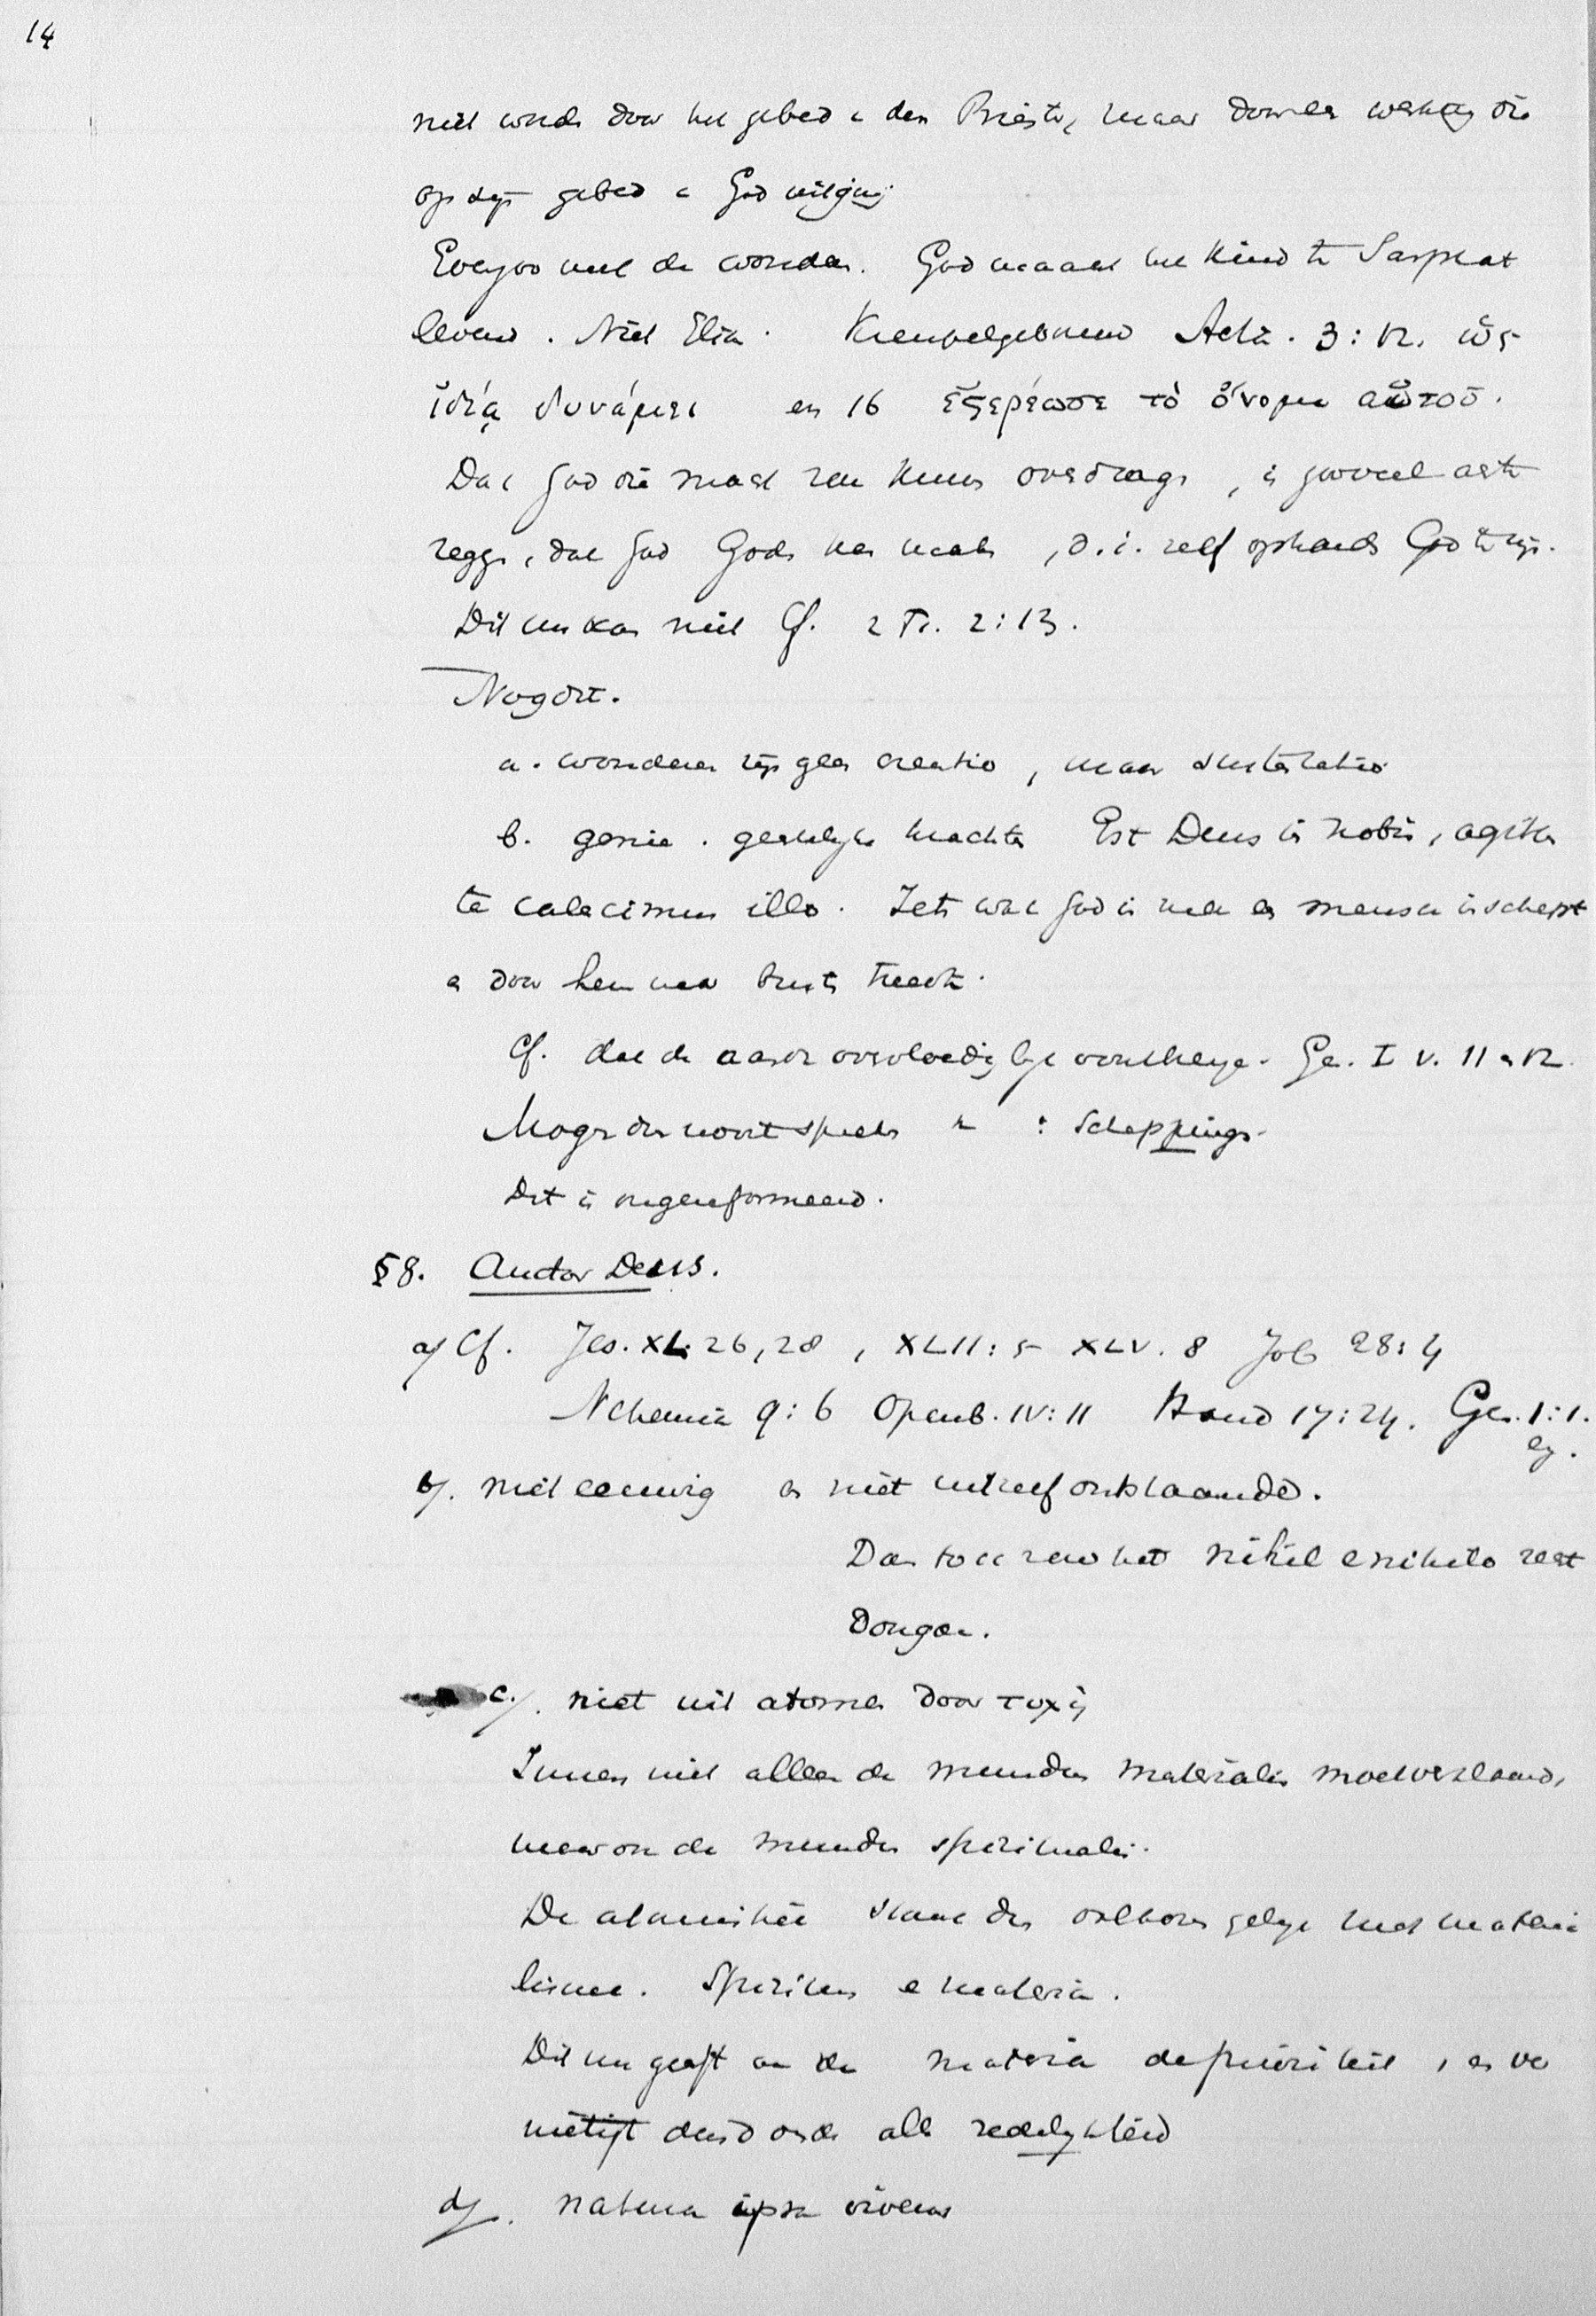 14
niet wordt door het gebed v den Priester, maar door de werking die
op zijn gebed v God uitging
Evenzoo met de wonderen. God maakt het kind te Sarphat
levend. Niet Elia. Kreupelgeborene Acta. 3:12. ὡς
ἰδίᾳ δυνάμει en 16 ἐστερέωσε τὸ ὄνομα αὐτοῦ.
Dat God die macht zou kunnen overdragen, is zooveel als te
zeggen, dat God Goden kan maken, d.i. zelf ophoudt God te zijn.
Dit nu kan niet Cf. 2 Ti. 2:13.
Nog dit.
a. wonderen zijn geen creatio, maar sustentatio
b. genie. geestelijke krachten Est Deus in nobis, agitan
te calescimus illo. Iets wat God in den mensch inschept
en door hem naar buiten treedt.
Cf. dat de aarde overvloediglijk voortbrenge. Ge. I v. 11 en 12
Mogen dus nooit spreken v : Scheppings-
Dit is ongereformeerd.
§8. Auctor Deus.
a/ Cf. Jes. XL: 26, 28, XLII: 5 XLV. 8 Job 28:4
Nehemia 9:6 Openb. IV: 11 Hand 17:24. Gen. 1:1.
b/. niet eeuwig en niet uit zich zelf ontstaande.
Dan toch zou het nihil e nihilo recht
doorgaan.
c/. niet uit atomen door τυχη
Immers niet alleen de mundus materialis moet verklaard,
maar ook de mundus spiritualis.
De atomistiek staat dus gelijk met materia
lisme. Spiritus e materia.
Dit nu geeft aan de materia de prioriteit, en ver
nietigt dus alle redelijkheid
d/. natura ipsa vivens